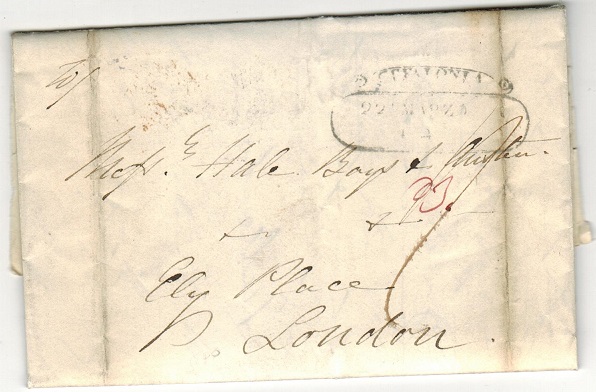 CEFALONIA
22 MARZO
Messrs Hale Boys & Austen
93
Ely Place
London.